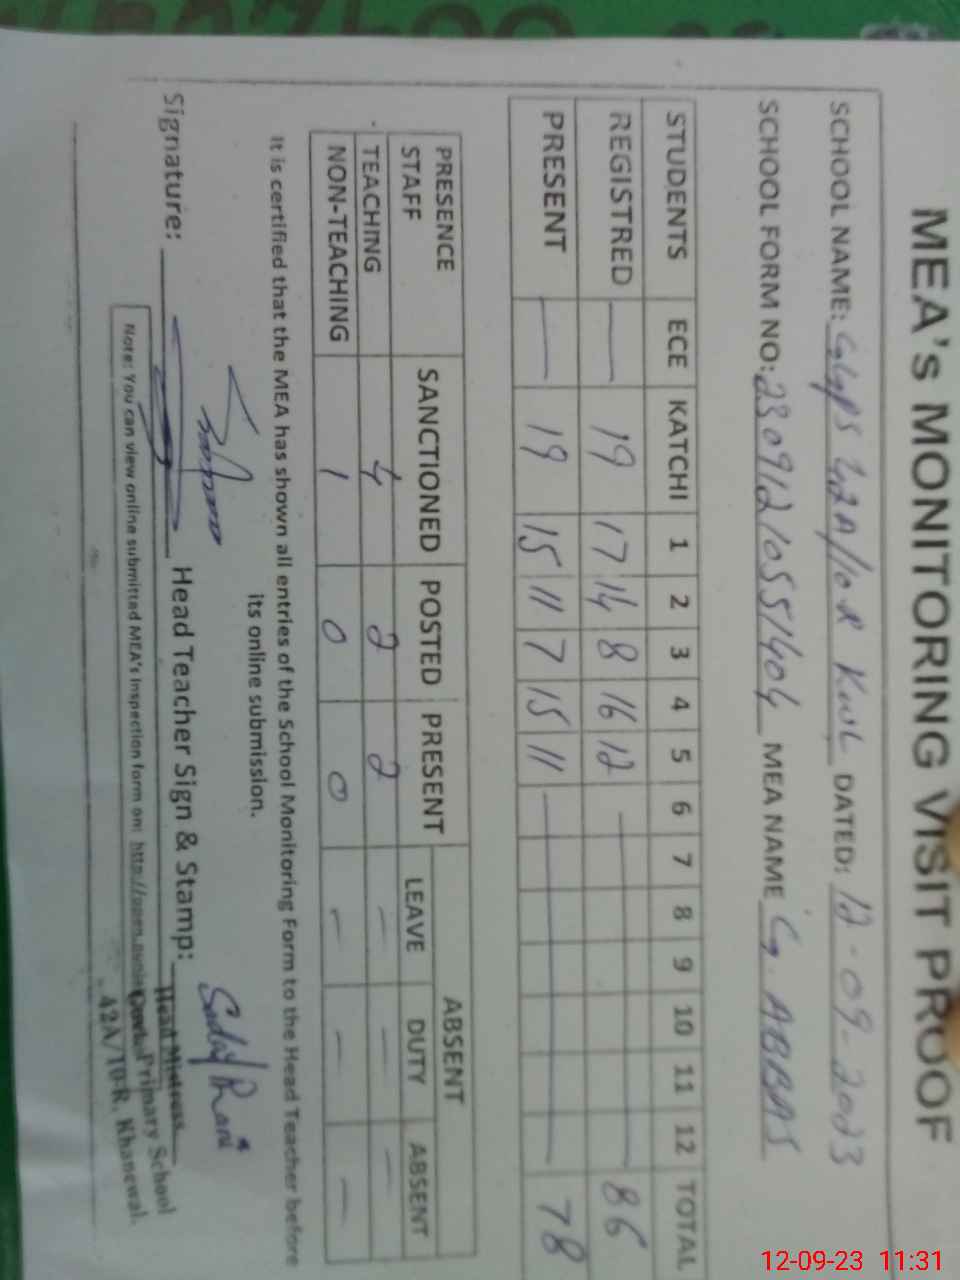 MEA's MONITORING VISIT PROOF
SCHOOL NAME: GGPS 42A/10R KWL DATED: 12-09-2023
SCHOOL FORM NO: 23091210551404 MEA NAME G. ABBAS
STUDENTS ECE KATCHI 1 2 3 4 5 6 7 8 9 10 11 12 TOTAL
REGISTRED — 19 17 14 8 16 12 — 86
PRESENT — 19 15 11 7 15 11 — 78
PRESENCE STAFF SANCTIONED POSTED PRESENT ABSENT
LEAVE DUTY ABSENT
TEACHING 4 2 2 — — —
NON-TEACHING 1 0 0 — — —
It is certified that the MEA has shown all entries of the School Monitoring Form to the Head Teacher before
its online submission.
Signature: Head Teacher Sign & Stamp:
Head Mistress
Note: You can view online submitted MEA's Inspection form on:
Primary School
42A/10-R, Khanewal.
12-09-23 11:31